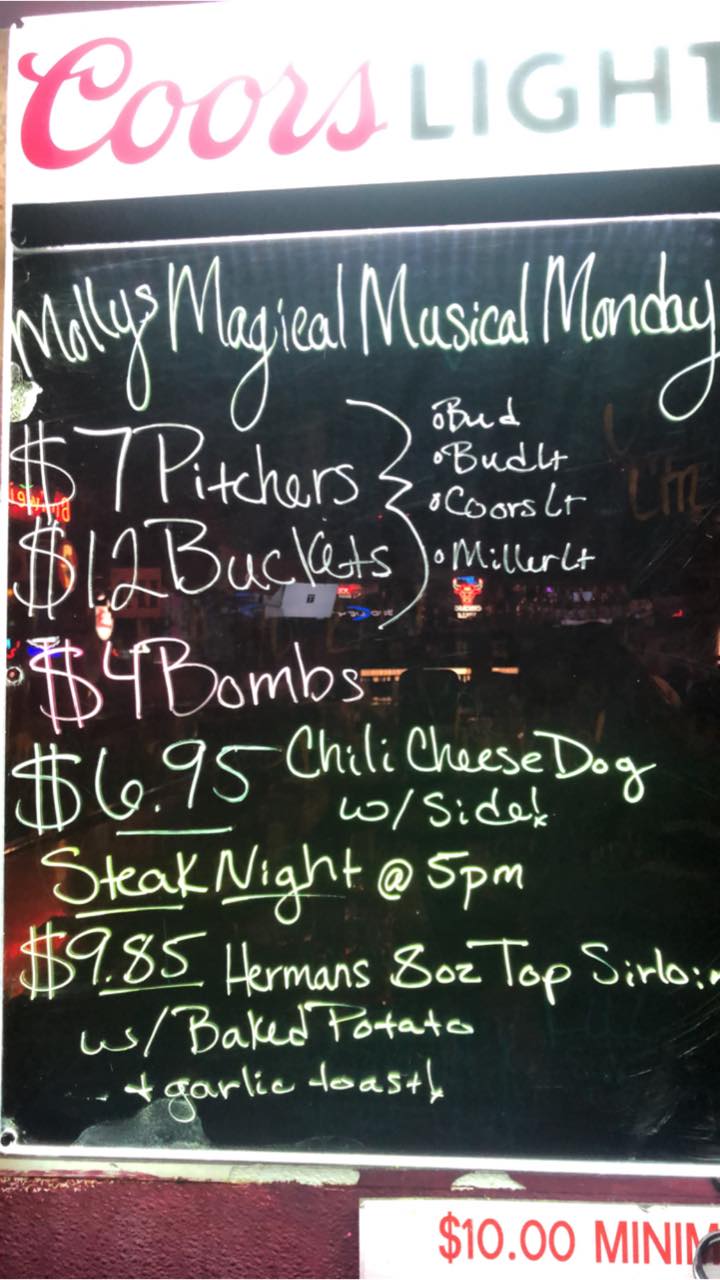 Coors LIGHT
Mollys Magical Musical Monday
$7 Pitchers
$12 Buckets
• Bud
• Bud Lt
• Coors Lt
• Miller Lt
$4 Bombs
$6.95 Chili Cheese Dog
w/ Side!
Steak Night @ 5pm
$9.85 Hermans 8oz Top Sirloin
w/ Baked Potato
+ garlic toast!
$10.00 MINIM